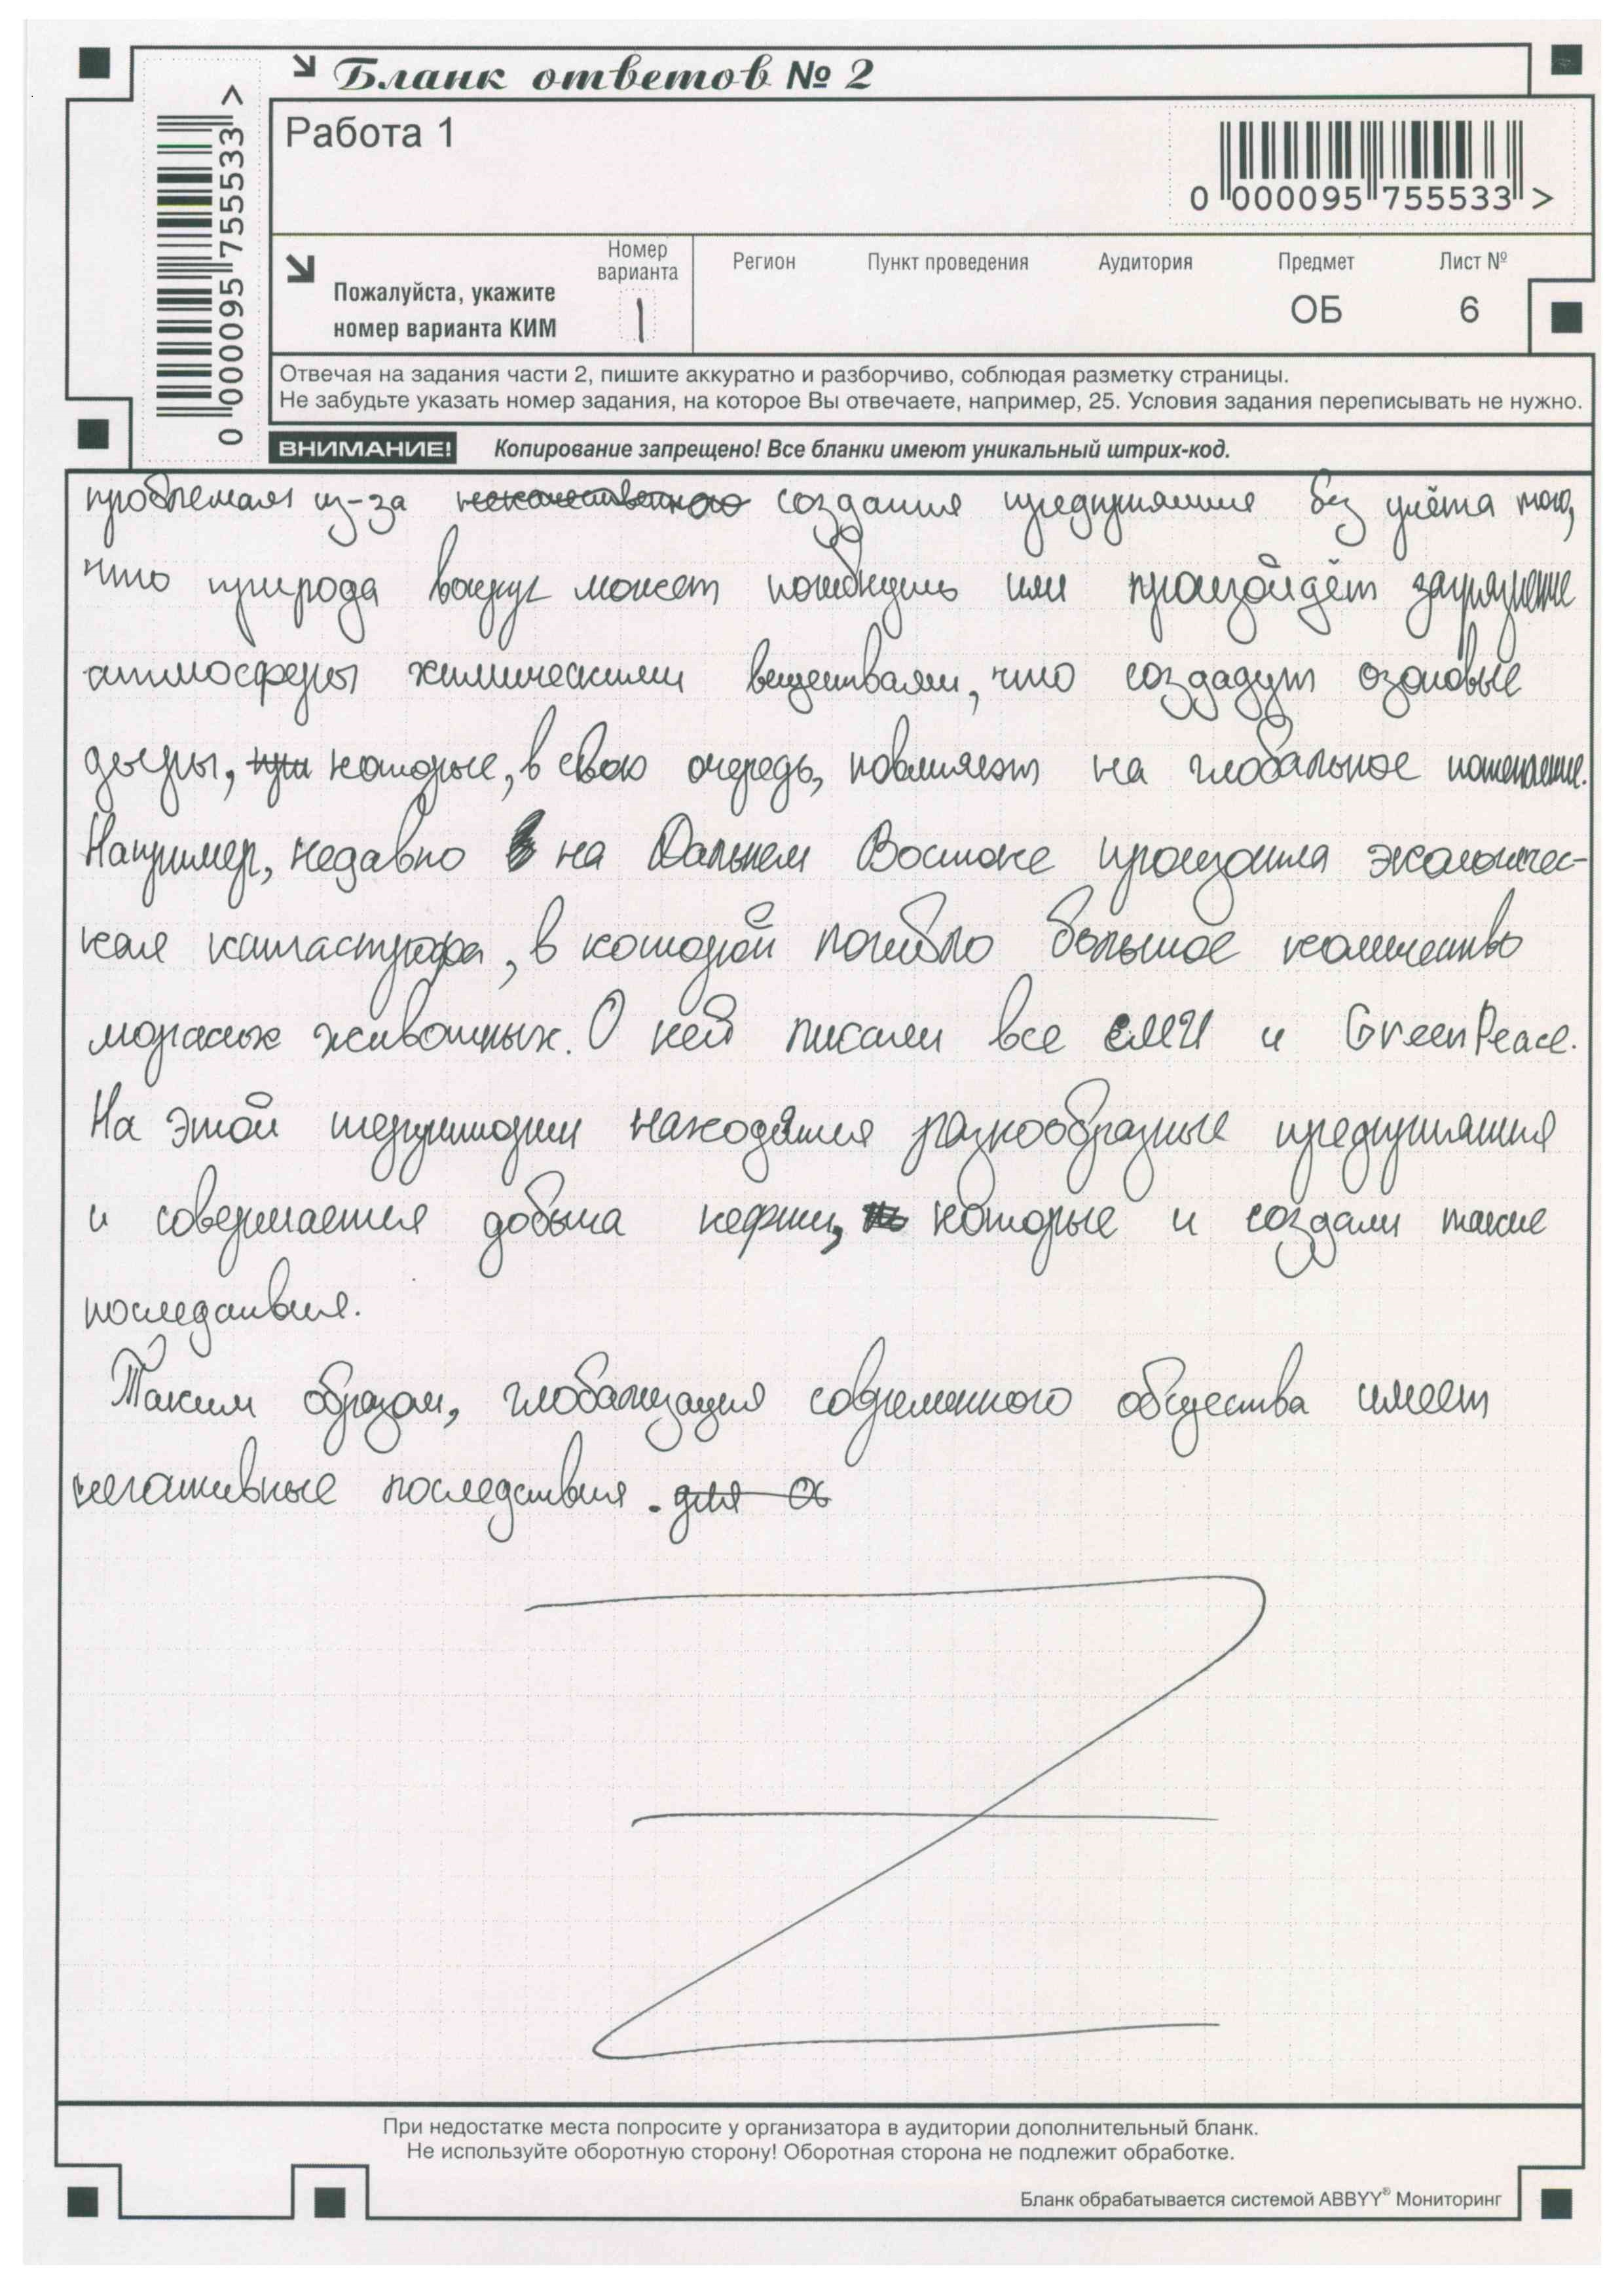 Бланк ответов № 2
Работа 1
0 000095 755533 >
0 000095 755533 >
Пожалуйста, укажите
номер варианта КИМ
Номер
варианта
1
Регион
Пункт проведения
Аудитория
Предмет
ОБ
Лист №
6
Отвечая на задания части 2, пишите аккуратно и разборчиво, соблюдая разметку страницы.
Не забудьте указать номер задания, на которое Вы отвечаете, например, 25. Условия задания переписывать не нужно.
ВНИМАНИЕ! Копирование запрещено! Все бланки имеют уникальный штрих-код.
проблемам из-за некачественного создания предприятия без учёта того,
что природа вокруг может погибнуть или произойдёт загрязнение
атмосферы химическими веществами, что создадут озоновые
дыры, при которые, в свою очередь, повлияют на глобальное потепление.
Например, недавно в на Дальнем Востоке произошла экологичес-
кая катастрофа, в которой погибло большое количество
морских животных. О ней писали все СМИ и GreenPeace.
На этой территории находятся разнообразные предприятия
и совершается добыча нефти, которые и создали такие
последствия.
Таким образом, глобализация современного общества имеет
негативные последствия. для о
При недостатке места попросите у организатора в аудитории дополнительный бланк.
Не используйте оборотную сторону! Оборотная сторона не подлежит обработке.
Бланк обрабатывается системой ABBYY® Мониторинг